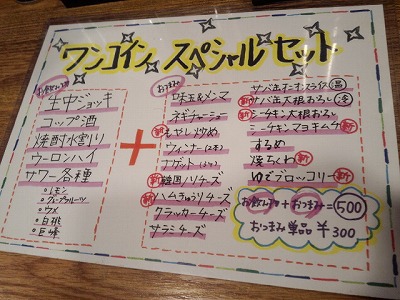 ワンコイン スペシャルセット
お飲み物
生中ジョッキ
コップ酒
焼酎水割り
ウーロンハイ
サワー各種
○レモン
○グレープフルーツ
○ウメ
○白桃
○巨峰
+
おつまみ
味玉&メンマ
ネギチャーシュー
新もやし炒め
ウィンナー(2本)
ナゲット(2コ)
新韓国ノリチーズ
新ハムきゅうりチーズ
クラッカーチーズ
サラミチーズ
サバ缶オニオンスライス 温
新サバ缶大根おろし 冷
新シーチキン大根おろし
シーチキンマヨキムチ 新
するめ
焼ちくわ 新
ゆでブロッコリー 新
お飲み物+おつまみ=500
おつまみ単品¥300